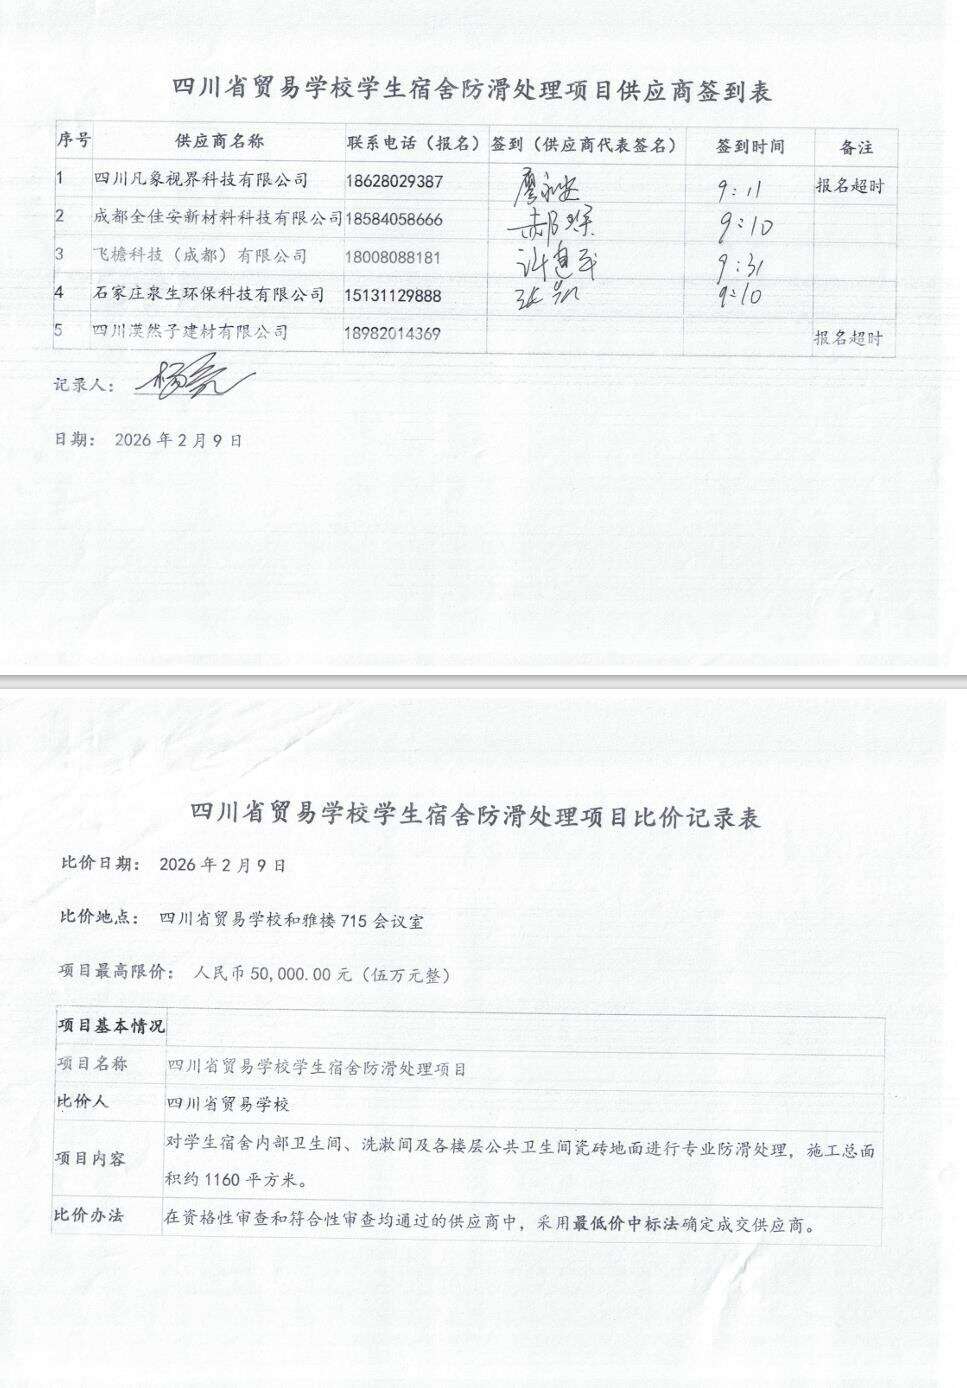 四川省贸易学校学生宿舍防滑处理项目供应商签到表
序号 供应商名称 联系电话（报名） 签到（供应商代表签名） 签到时间 备注
1 四川凡象视界科技有限公司 18628029387 廖永安 9:11 报名超时
2 成都全佳安新材料科技有限公司 18584058666 9:10
3 飞檐科技（成都）有限公司 18008088181 许建平 9:31
4 石家庄泉生环保科技有限公司 15131129888 9:10
5 四川漠然子建材有限公司 18982014369 报名超时
记录人：
日期： 2026年2月9日
四川省贸易学校学生宿舍防滑处理项目比价记录表
比价日期： 2026年2月9日
比价地点： 四川省贸易学校和雅楼715会议室
项目最高限价： 人民币50,000.00元（伍万元整）
项目基本情况
项目名称 四川省贸易学校学生宿舍防滑处理项目
比价人 四川省贸易学校
项目内容 对学生宿舍内部卫生间、洗漱间及各楼层公共卫生间瓷砖地面进行专业防滑处理，施工总面
积约1160平方米。
比价办法 在资格性审查和符合性审查均通过的供应商中，采用最低价中标法确定成交供应商。